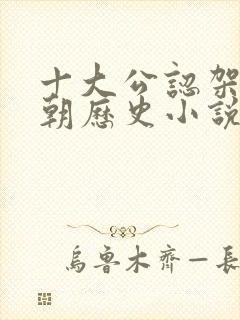 十大公認架
朝歷史小説
烏魯木齊—長